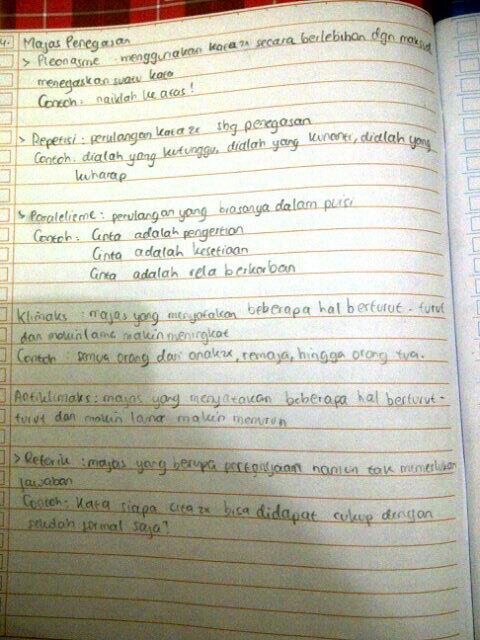 4. Majas Penegasan
> Pleonasme : menggunakan kata2x secara berlebihan dgn maksud
menegaskan suatu kata
Contoh : naiklah ke atas!
> Repetisi : perulangan kata2x sbg penegasan
Contoh : dialah yang kutunggu, dialah yang kunanti, dialah yang
kuharap
> Paralelisme : perulangan yang biasanya dalam puisi
Contoh : Cinta adalah pengertian
Cinta adalah kesetiaan
Cinta adalah rela berkorban
Klimaks : majas yang menyatakan beberapa hal berturut - turut
dan makin lama makin meningkat
Contoh : semua orang dari anak2x, remaja, hingga orang tua.
Antiklimaks : majas yang menyatakan beberapa hal berturut -
turut dan makin lama makin menurun
> Retorik : majas yang berupa pertanyaan namun tak memerlukan
jawaban
Contoh : Kata siapa cita2x bisa didapat cukup dengan
sekolah formal saja?